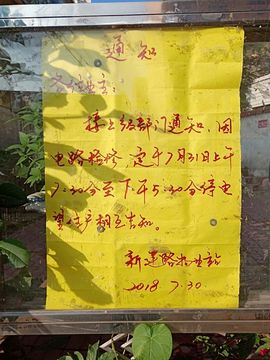 通知
各位业主：
接上级部门通知，因
电路检修，定于7月31日上午
7:30分至下午5:30分停电
望住户相互告知。
新建路物业站
2018 7.30